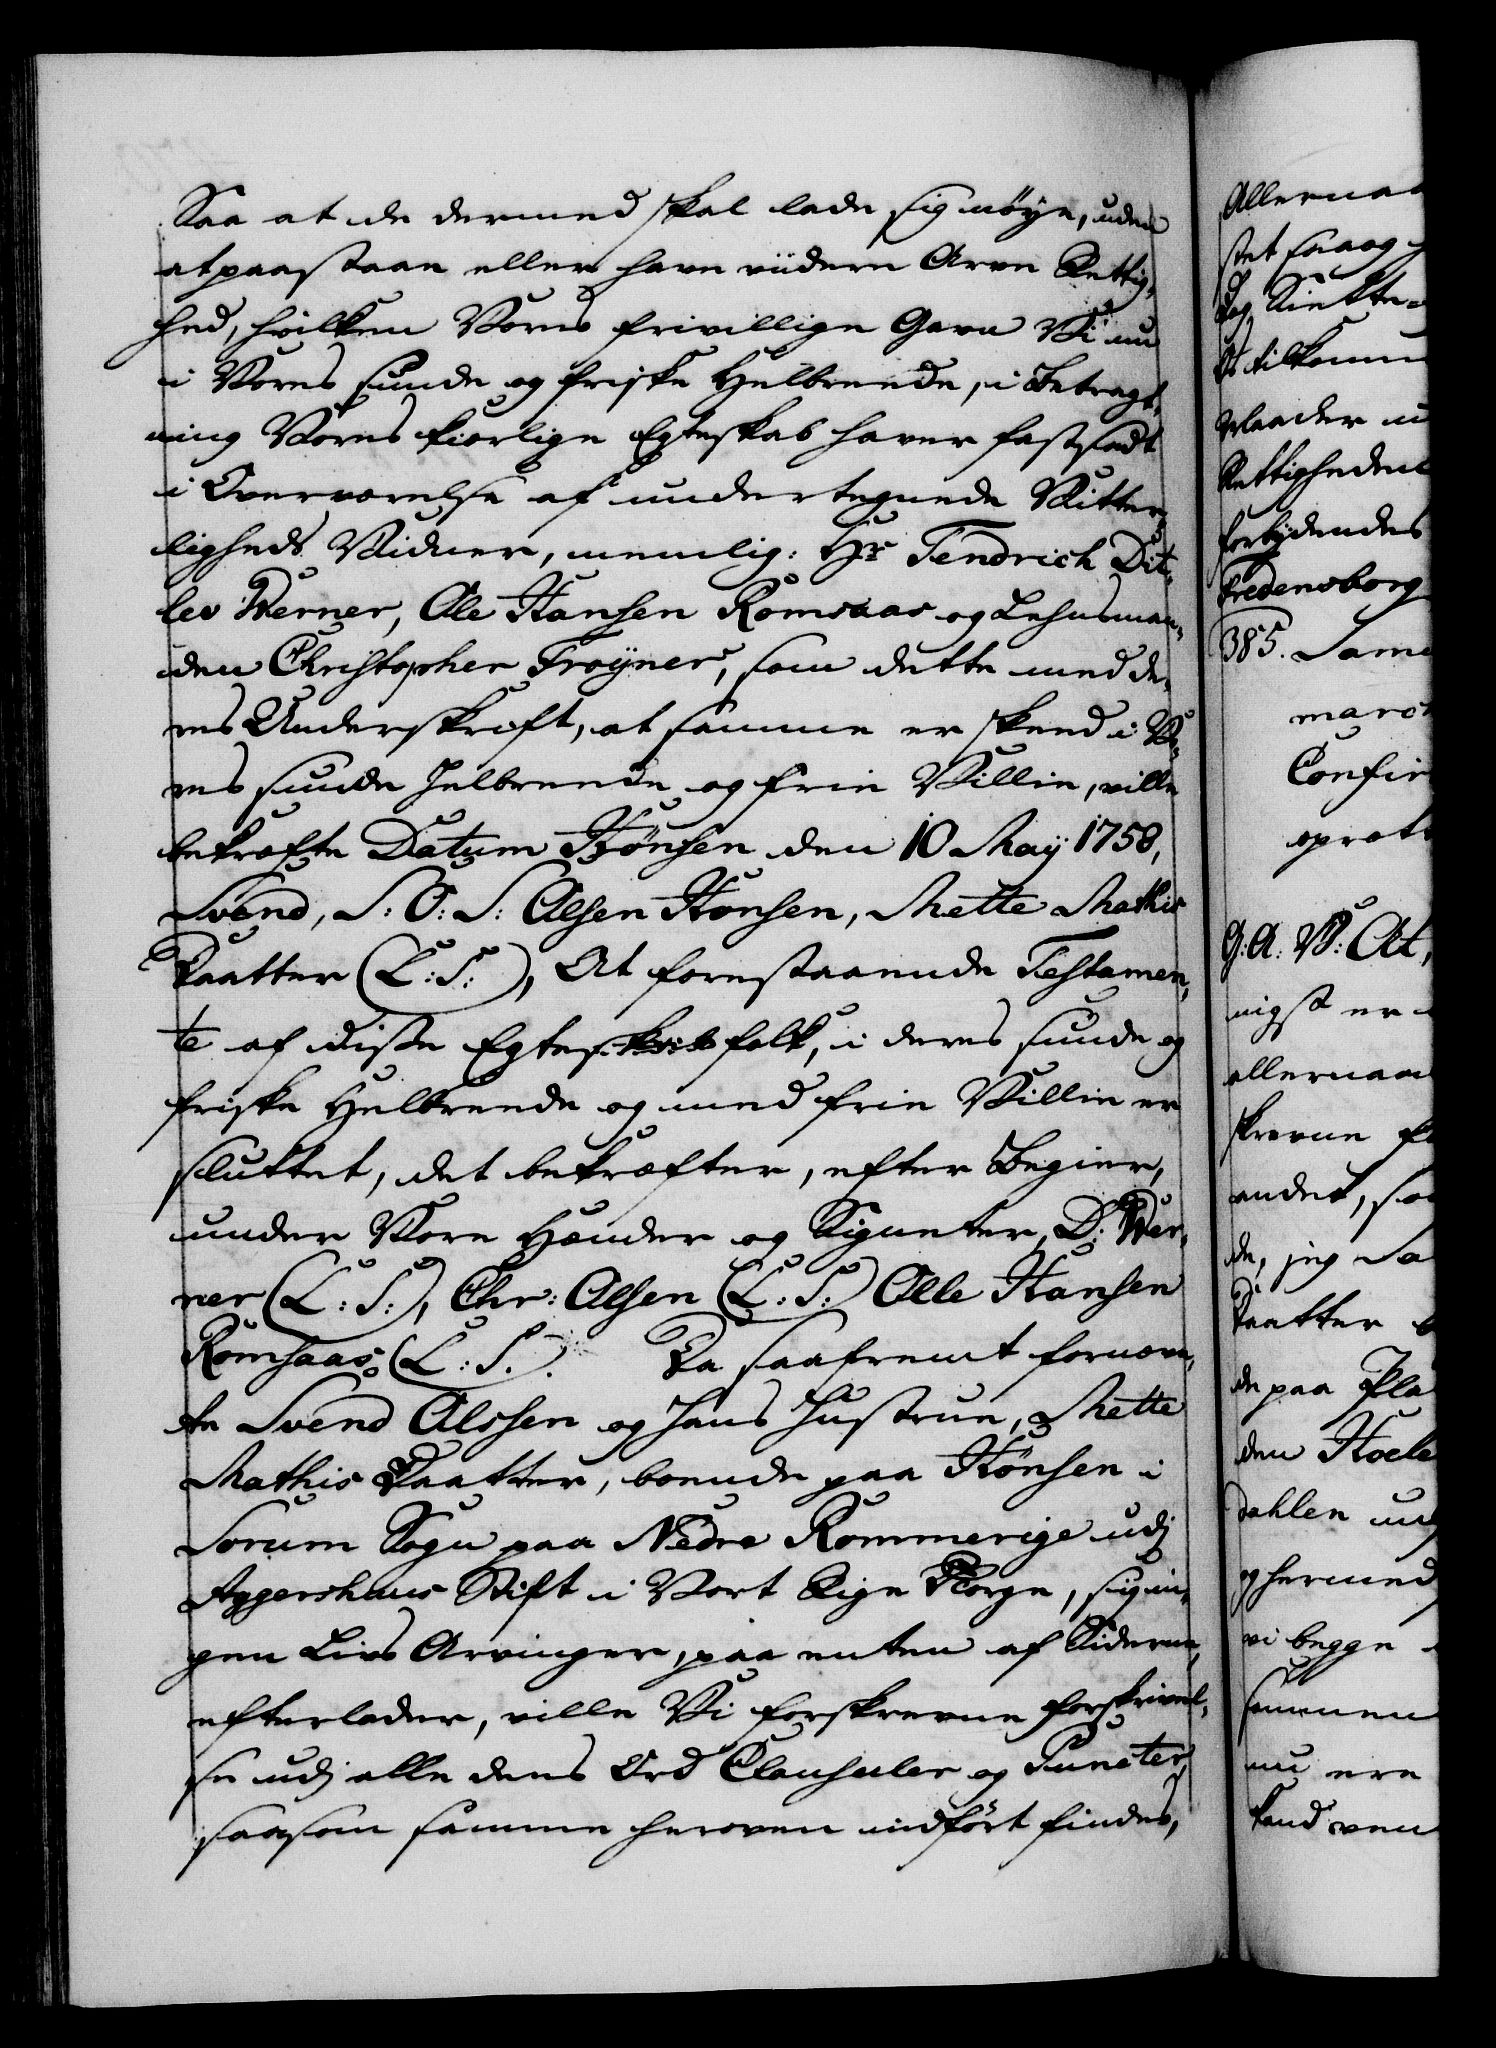 Saa at de dermed skal lade sig nöye, uden
at paastaae eller have viidere Arve Rettig,
hed, hvilken Vores frivillige Gave Vi nu
i Vores sunde og friske Helbreede, i Betragt,
ning Vores kierlige Egteskab haver fastsadt
i Overværelse af undertegnede Vitter,
ligheds Vidner, nemlig: Hr Fendrich Dit,
lev Werner, Ole Hansen Romsaas og Lehnsman,
den Christopher Frøyner, som dette med de,
res Underskrift, at samme er skeed i Vo,
res sunde Helbreede og frie Villie, ville
bekræfte Datum Hönsen den 10 May 1758,
Svend, S: O: S: Olsen Hönsen, Mette Mathis
Daatter (L: S:), At forestaaende Testamen,
te af disse Egte folk, i deres sunde og
friske Helbreede og med frie Villie er
sluttet, det bekræfter, efter Begier,
under Vore Hænder og Signeter, D: Wer,
ner (L: S:), Chr: Olsen (L: S:) Olle Hansen
Romsaas (L: S. Da saafremt fornævn,
te Svend Olssen og hans Hustrue, Mette
Mathis Daatter, boende paa Hönsen i
Sorum Sogn paa Nedre Rommerige udj
Aggershuus Stift i Vort Rige Norge, sig in,
gen Livs Arvinger, paa enten af Siderne,
efterlader, ville Vi forskrevne forskrivel,
se udj alle dens Ord Clausuler og Puncter,
saasom samme heroven indfört findes,
Allernaa
stet saa og
og
tilkomm
Maader u
Rettighedens
forbydendes
Fredensborg
385. Same
mark
Confir
oprett
G. A. V: At,
nigst er
allernaa
skrevne
andet, so
de, jeg Sa
Daatter
de paa Pla
den Hoele
Dahlen ud
og hermed
vi begge
sammen
nu ere
kand ven